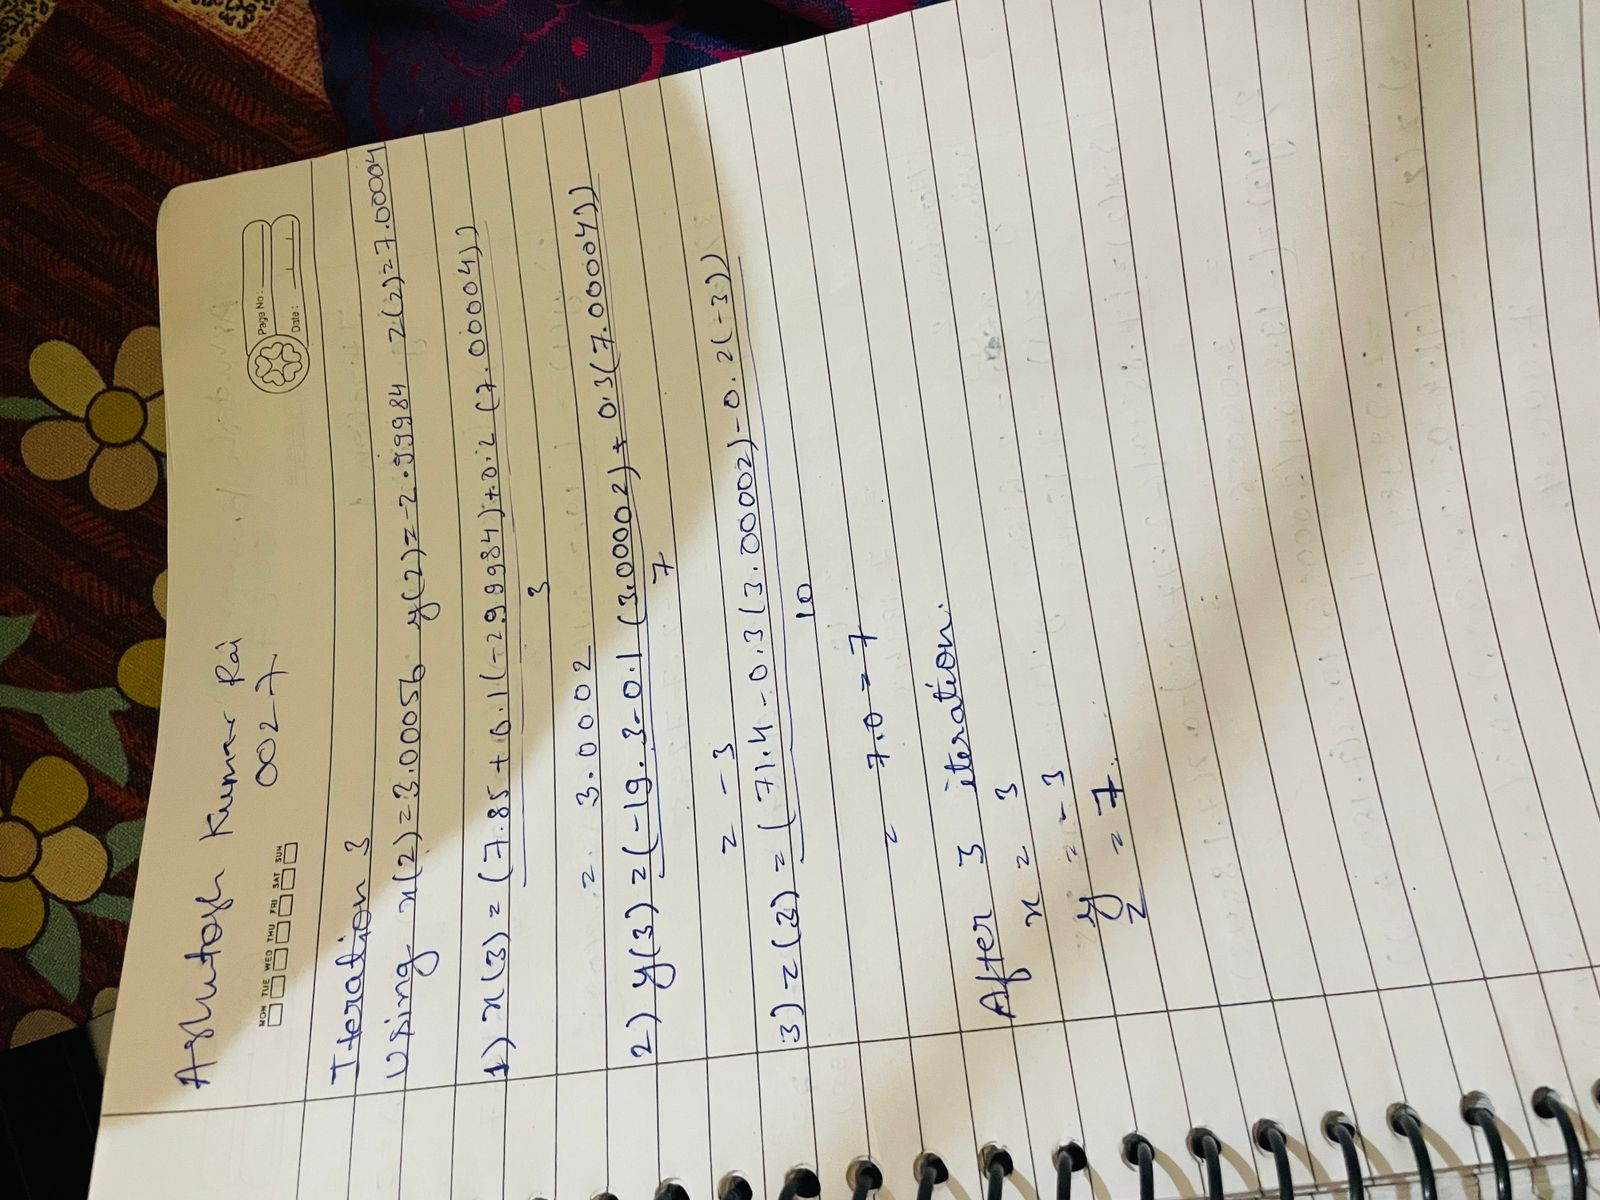 Ashutosh Kumar Rai
002-7
MON TUE WED THU FRI SAT SUN
Page No:
Date:
Iteration 3
Using x(2)=3.00056 y(2)=-2.99984 z(2)=7.00004
1) x(3) = (7.85+0.1(-2.99984)+0.2(7.00004))
3
= 3.0002
2) y(3) = (-19.3-0.1(3.0002)+0.3(7.00004))
7
= -3
3) z(3) = (71.4-0.3(3.00002)-0.2(-3))
10
= 7.0=7
After 3 iteration.
x = 3
y = -3
z = 7.